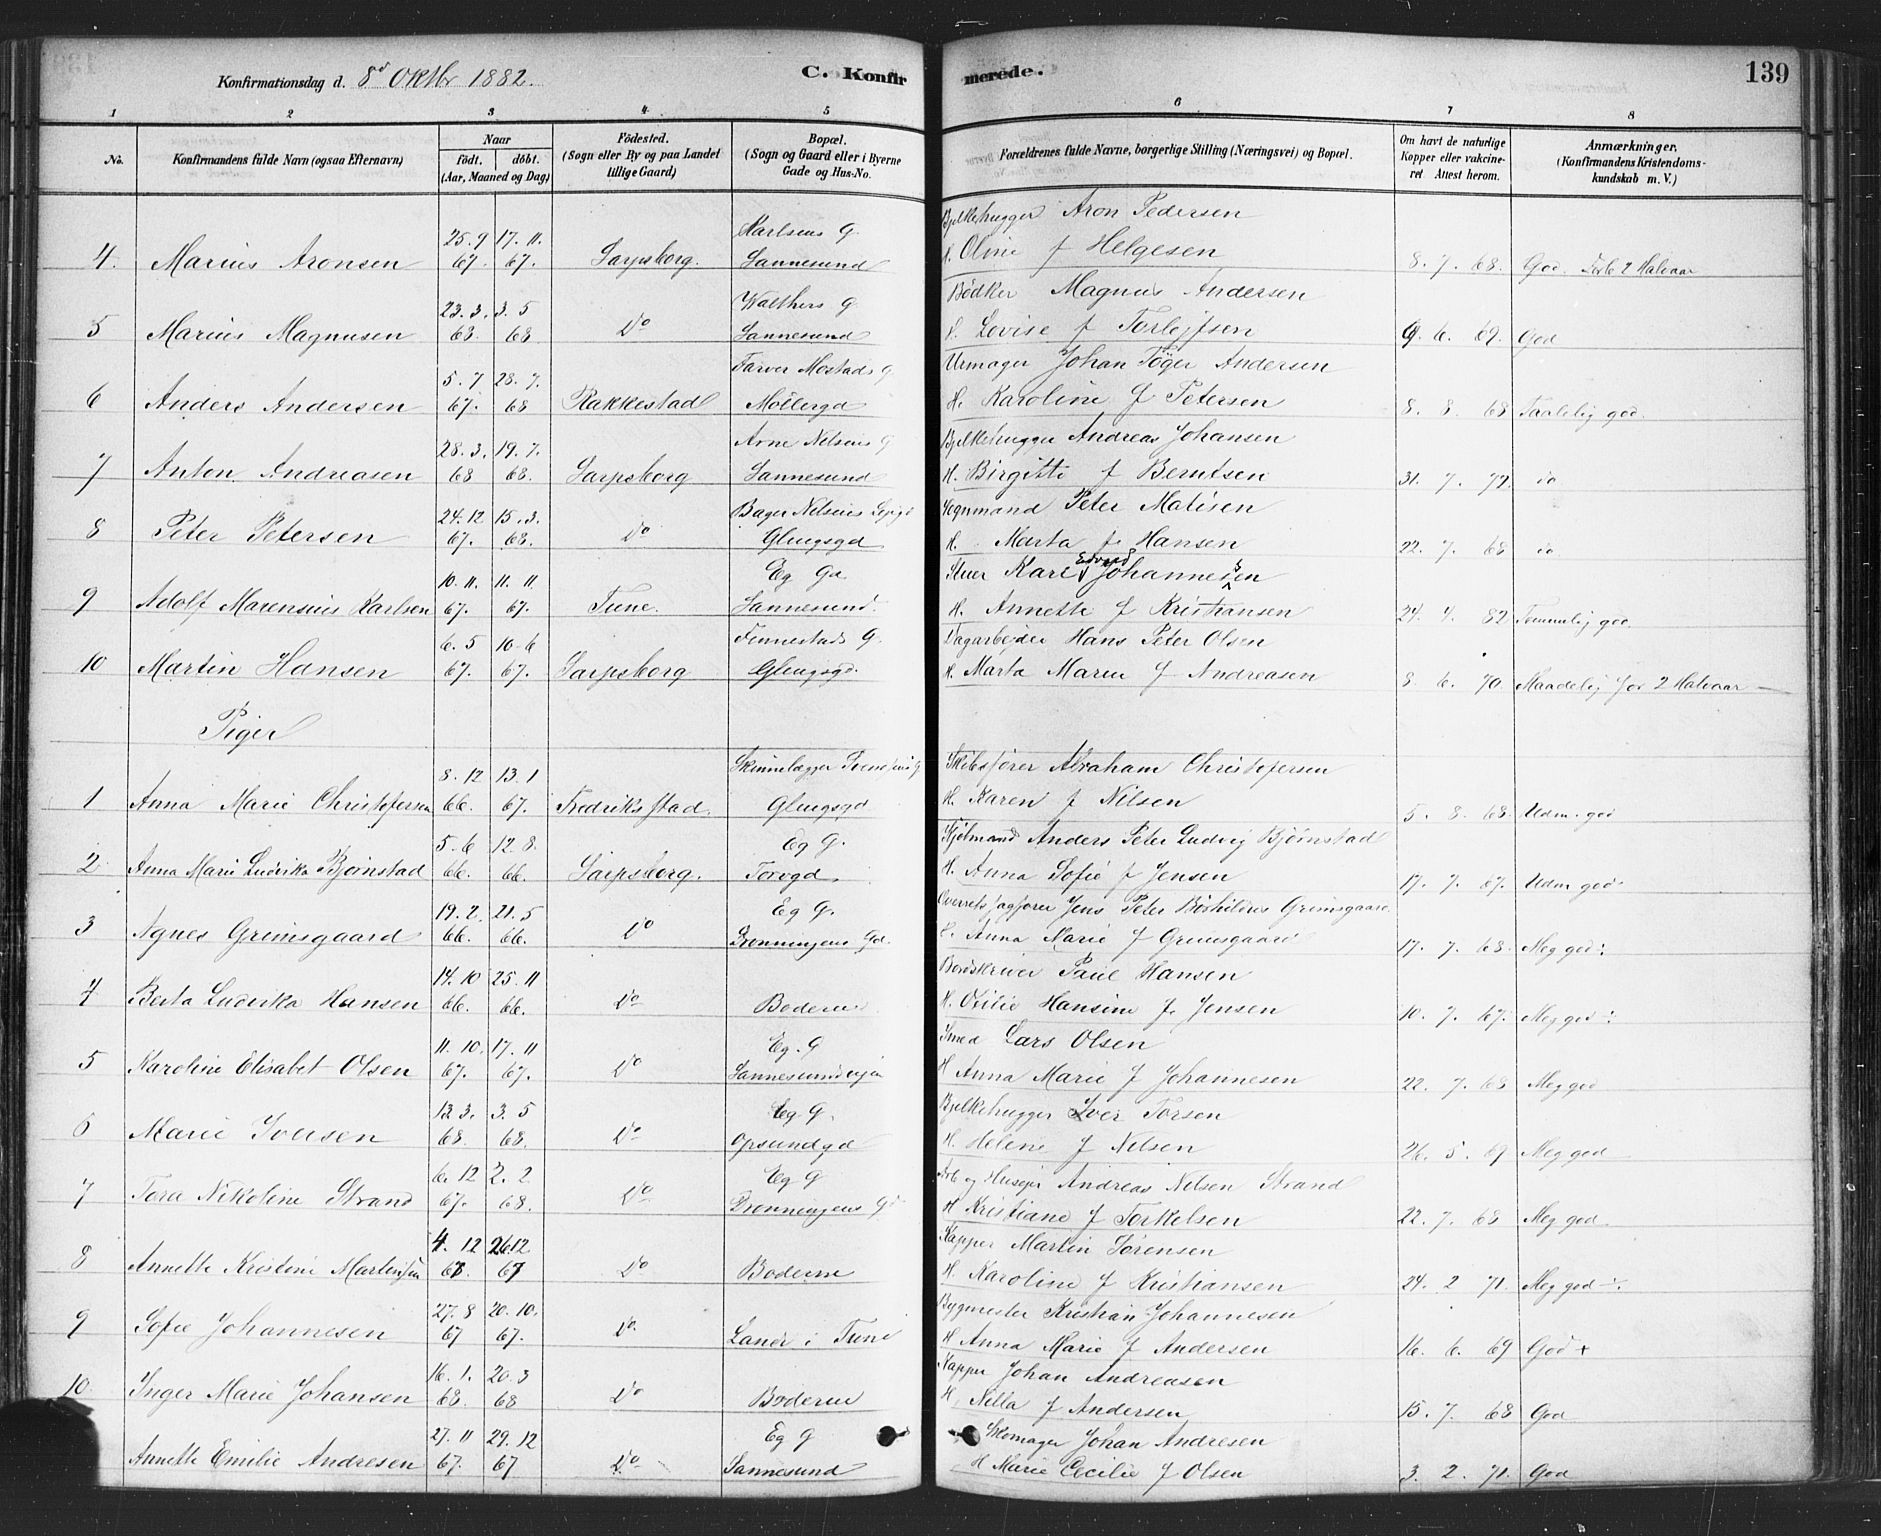 Konfirmationsdag d. 8de Oktbr 1882. C. Konfirmerede. 139
1 2 3 4 5 6 7 8
No. Konfirmandens fulde Navn (ogsaa Efternavn) Naar født. døbt. (Aar, Maaned og Dag) Fødested. (Sogn eller By og paa Landet tillige Gaard) Bopæl. (Sogn og Gaard eller i Byerne Gade og Hus-No. Forældrenes fulde Navne, borgerlige Stilling (Næringsvei) og Bopæl. Om havt de naturlige Kopper eller vakcineret Attest herom. Anmærkninger. (Konfirmandens Kristendomskundskab m. V.)
25. 9 17. 11. Karlsens G. Bjelkehugger Aron Pedersen
4. Marius Aronsen 67. 67. Sarpsborg. Sannesund H. Oline f Helgesen 8. 7. 68. God. Forb 2 Halvaar
23. 3. 3. 5 Walthers G. Bødker Magnus Andersen
5 Marius Magnusen 68 68 Do Sannesund H. Lovise f Torlejfsen 9. 6. 69. God
5. 7 28. 7. Farver Mostads G Urmager Johan Töger Andersen
6 Anders Andersen 67. 68 Rakkestad Møllergd H. Karoline f Petersen 8. 8. 68 Taalelig god.
28. 3. 19. 7. Arne Nilsens G Bjelkehugger Andreas Johansen
7 Anton Andreasen 68 68. Sarpsborg Sannesund H. Birgitte f Berntsen 31. 7. 72. do
24. 12 15. 3. Bager Nilsens Legigd Peter Matisen
8 Peter Petersen 67. 68. Do Glengsgd H. Marta f. Hansen 22. 7. 68 do
10. 11. 11. 11 Eg Gd Stuer Karl Edvard Johannesen
9 Adolf Marensius Karlsen 67. 67. Tune. Sannesund. H. Annette f Kristiansen 24. 4. 82 Temmelig god.
6. 5 10. 6 Finnestads G. Dagarbejder Hans Peter Olsen
10 Martin Hansen 67. 67. Sarpsborg Glengsgd. H. Marta Maren f Andreasen 8. 6. 70. Maadelig for 2 Halvaar
Piger
8. 12 13. 1 Skibsfører Abraham Christofersen
1 Anna Marie Christofersen 66. 67. Fredriksstad. Glengsgd H. Karen f Nilsen 5. 8. 68. Udm. god
5. 6 12. 8. Eg G. Sjømand Anders Peter Ludvig Bjørnstad
2 Anna Marie Ludvika Bjørnstad 66. 66. Sarpsborg. Torvgd. H. Anna Sofie f Jensen 17. 7. 67. Udm god
19. 2. 21. 5 Eg G. Overretssagfører Jens Peter Grimsgaard
3 Agnes Grimsgaard 66. 66. Do Dronningens Gd. H. Anna Marie f Grimsgaard 17. 7. 68. Meg god ÷
14. 10 25. 11 Bordskriver Paul Hansen
4 Berta Ludvika Hansen 66. 66. Do Boderne H. Otilie Hansine f. Jensen 10. 7. 67. Meg god ÷
11. 10. 17. 11 Eg. G Smed Lars Olsen
5 Karoline Elisabet Olsen 67. 67. Do Sannesundvejen H Anna Marie f Johannesen 22. 7. 68 Meg god
12 3. 3. 5 Eg G. Bjelkehugger Iver Torsen
6 Marie Iversen 68. 68. Do Opsundgd H. Helene f Nilsen 26. 5. 69 Meg god
6. 12 2. 2 Eg G Arb og Husejer Andreas Nilsen Strand
7 Tora Nikoline Strand 67. 68. Do Dronningens Gd H Kristiane f Torkelsen 22. 7. 68 Meg god
4. 12 26 12 Kapper Martin Sørensen
8 Annette Kristine Martinsen 67. 67 Do Boderne H. Karoline f Kristiansen 24. 2 71. Meg god ÷
27. 8 20. 10. Bygmester Kristian Johannesen
9 Sofie Johannesen 67 67. Do. Lande i Tune H Anna Marie f Andersen 16. 6. 69 God +
16. 1. 20. 3 Kapper Johan Andreasen
10 Inger Marie Johansen 68. 68 Do Boderne H. Nella f Andersen 15. 7. 68 God
27. 11 29. 12 Eg G Skomager Johan Andresen
Annette Emilie Andresen 67. 67 Do Sannesund H Marie Cecilie f Olsen 3. 2. 71. God